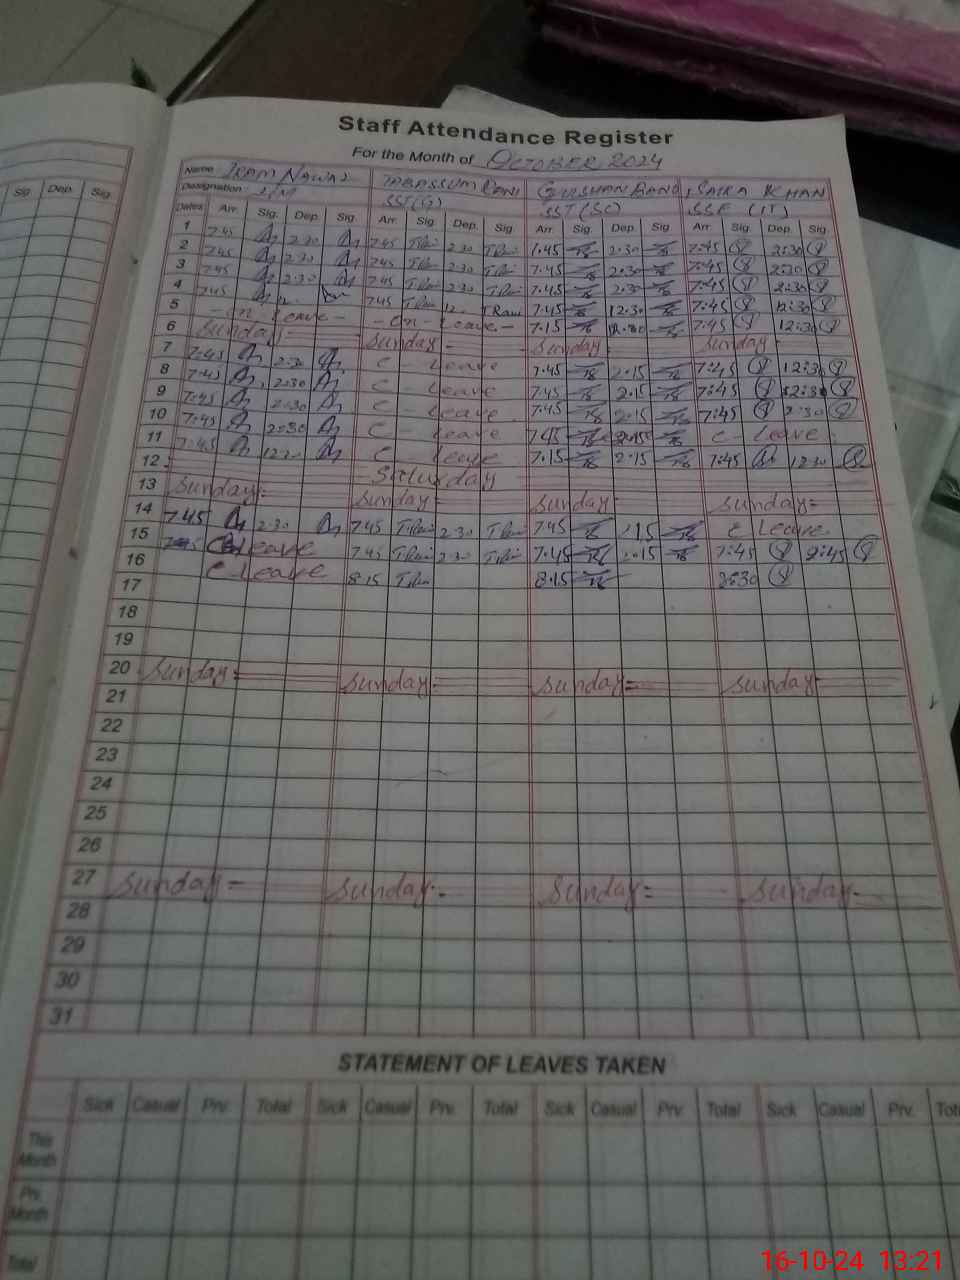 Staff Attendance Register
For the Month of OCTOBER 2024
Name IRAM NAWAZ TABASSUM RANI GULSHAN BANO SAIRA KHAN
Designation SST(G) SST(SC) SSE (IT)
Dates Arr. Sig. Dep. Sig. Arr. Sig. Dep. Sig. Arr. Sig. Dep. Sig. Arr. Sig. Dep. Sig.
Sig. Dep. Sig.
1 7.45 2.30 7.45 2.30 7.45 2.30 7:45 2:30
2 7.45 2.30 7.45 2.30 7.45 2.30 7:45 2:30
3 7.45 2.30 7.45 2.30 7.45 2.30 7:45 2:30
4 7.45 12. 7.45 12. 7.45 12.30 7:45 12:30
5 - on Leave - - on - Leave - 7.15 12.30 7:45 12:30
6 Sunday Sunday - Sunday Sunday
7 7:45 2:30 C - Leave 7.45 2.15 7:45 12:30
8 7:45 2:30 C Leave 7.45 2.15 7:45 12:30
9 7:45 2:30 C Leave 7.45 2.15 7:45 2:30
10 7:45 2:30 C - Leave 7.45 2.15 C - Leave
11 7:45 C Leave 7.15 2.15 7:45 12:30
12 Saturday
13 Sunday Sunday Sunday Sunday
14 7.45 2.30 7.45 2.30 7.45 C Leave
15 C Leave 7.45 2.30 7.45 2.15 7:45 2:45
16 C Leave 8.15 8.15 8:30
17
18
19
20 Sunday Sunday Sunday Sunday
21
22
23
24
25
26
27 Sunday Sunday Sunday Sunday
28
29
30
31
STATEMENT OF LEAVES TAKEN
Sick Casual Prv. Total Sick Casual Prv. Total Sick Casual Prv. Total Sick Casual Prv. Tot
This Month
Prv. Month
Total
16-10-24 13:21